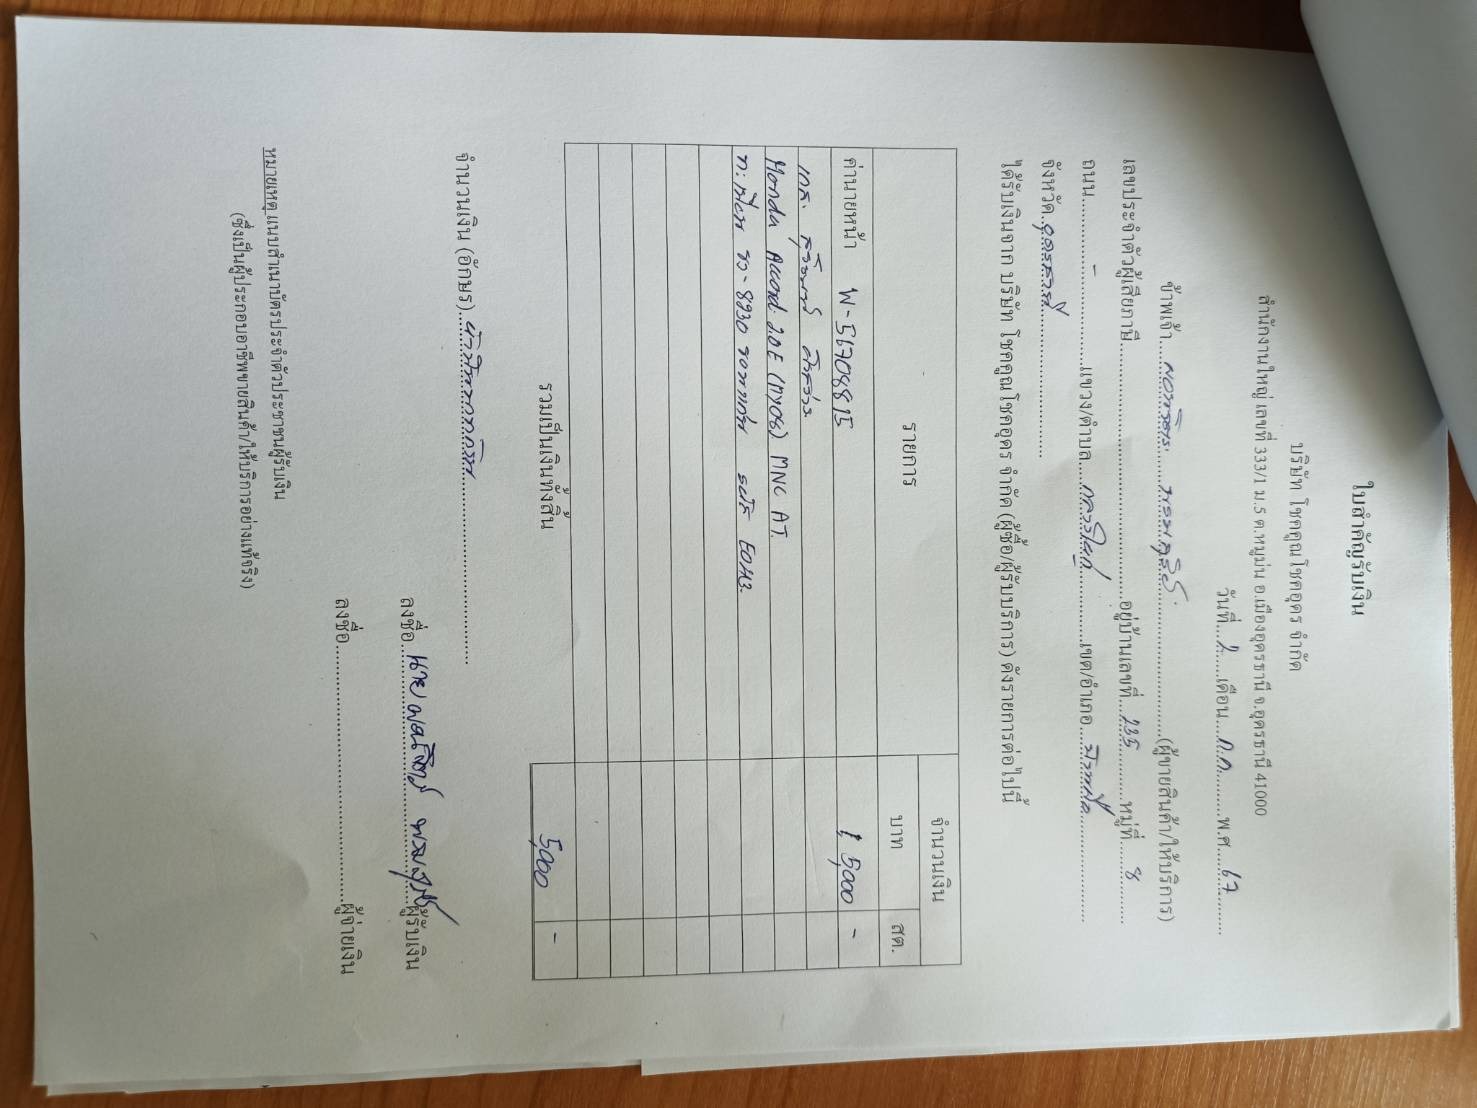 ใบสำคัญรับเงิน
บริษัท โชคคูณโชคอุดร จำกัด
สำนักงานใหญ่ เลขที่ 333/1 ม.5 ต.หมูม่น อ.เมืองอุดรธานี จ.อุดรธานี 41000
วันที่ 2 เดือน ก.ค. พ.ศ. 67
ข้าพเจ้า (ผู้ขายสินค้า/ให้บริการ)
เลขประจำตัวผู้เสียภาษี อยู่บ้านเลขที่ 235 หมู่ที่ 8
ถนน - แขวง/ตำบล กลางใหญ่ เขต/อำเภอ บ้านผือ
จังหวัด อุดรธานี
ได้รับเงินจาก บริษัท โชคคูณโชคอุดร จำกัด (ผู้ซื้อ/ผู้รับบริการ) ดังรายการต่อไปนี้
รายการ จำนวนเงิน
บาท สต.
ค่านายหน้า W-51708815 5,000 -
Honda Accord 2.0E (MY08) MNC AT.
8930 ขอนแก่น รหัส E0H3.
รวมเป็นเงินทั้งสิ้น 5,000 -
จำนวนเงิน (อักษร) ห้าพันบาทถ้วน
ลงชื่อ นาย ผู้รับเงิน
ลงชื่อ ผู้จ่ายเงิน
หมายเหตุ แนบสำเนาบัตรประจำตัวประชาชนผู้รับเงิน
(ซึ่งเป็นผู้ประกอบอาชีพขายสินค้า/ให้บริการอย่างแท้จริง)